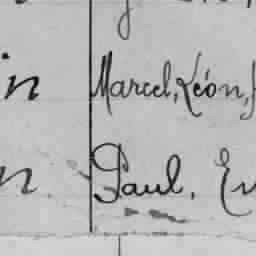 in Marcel, Léon,
n Paul,